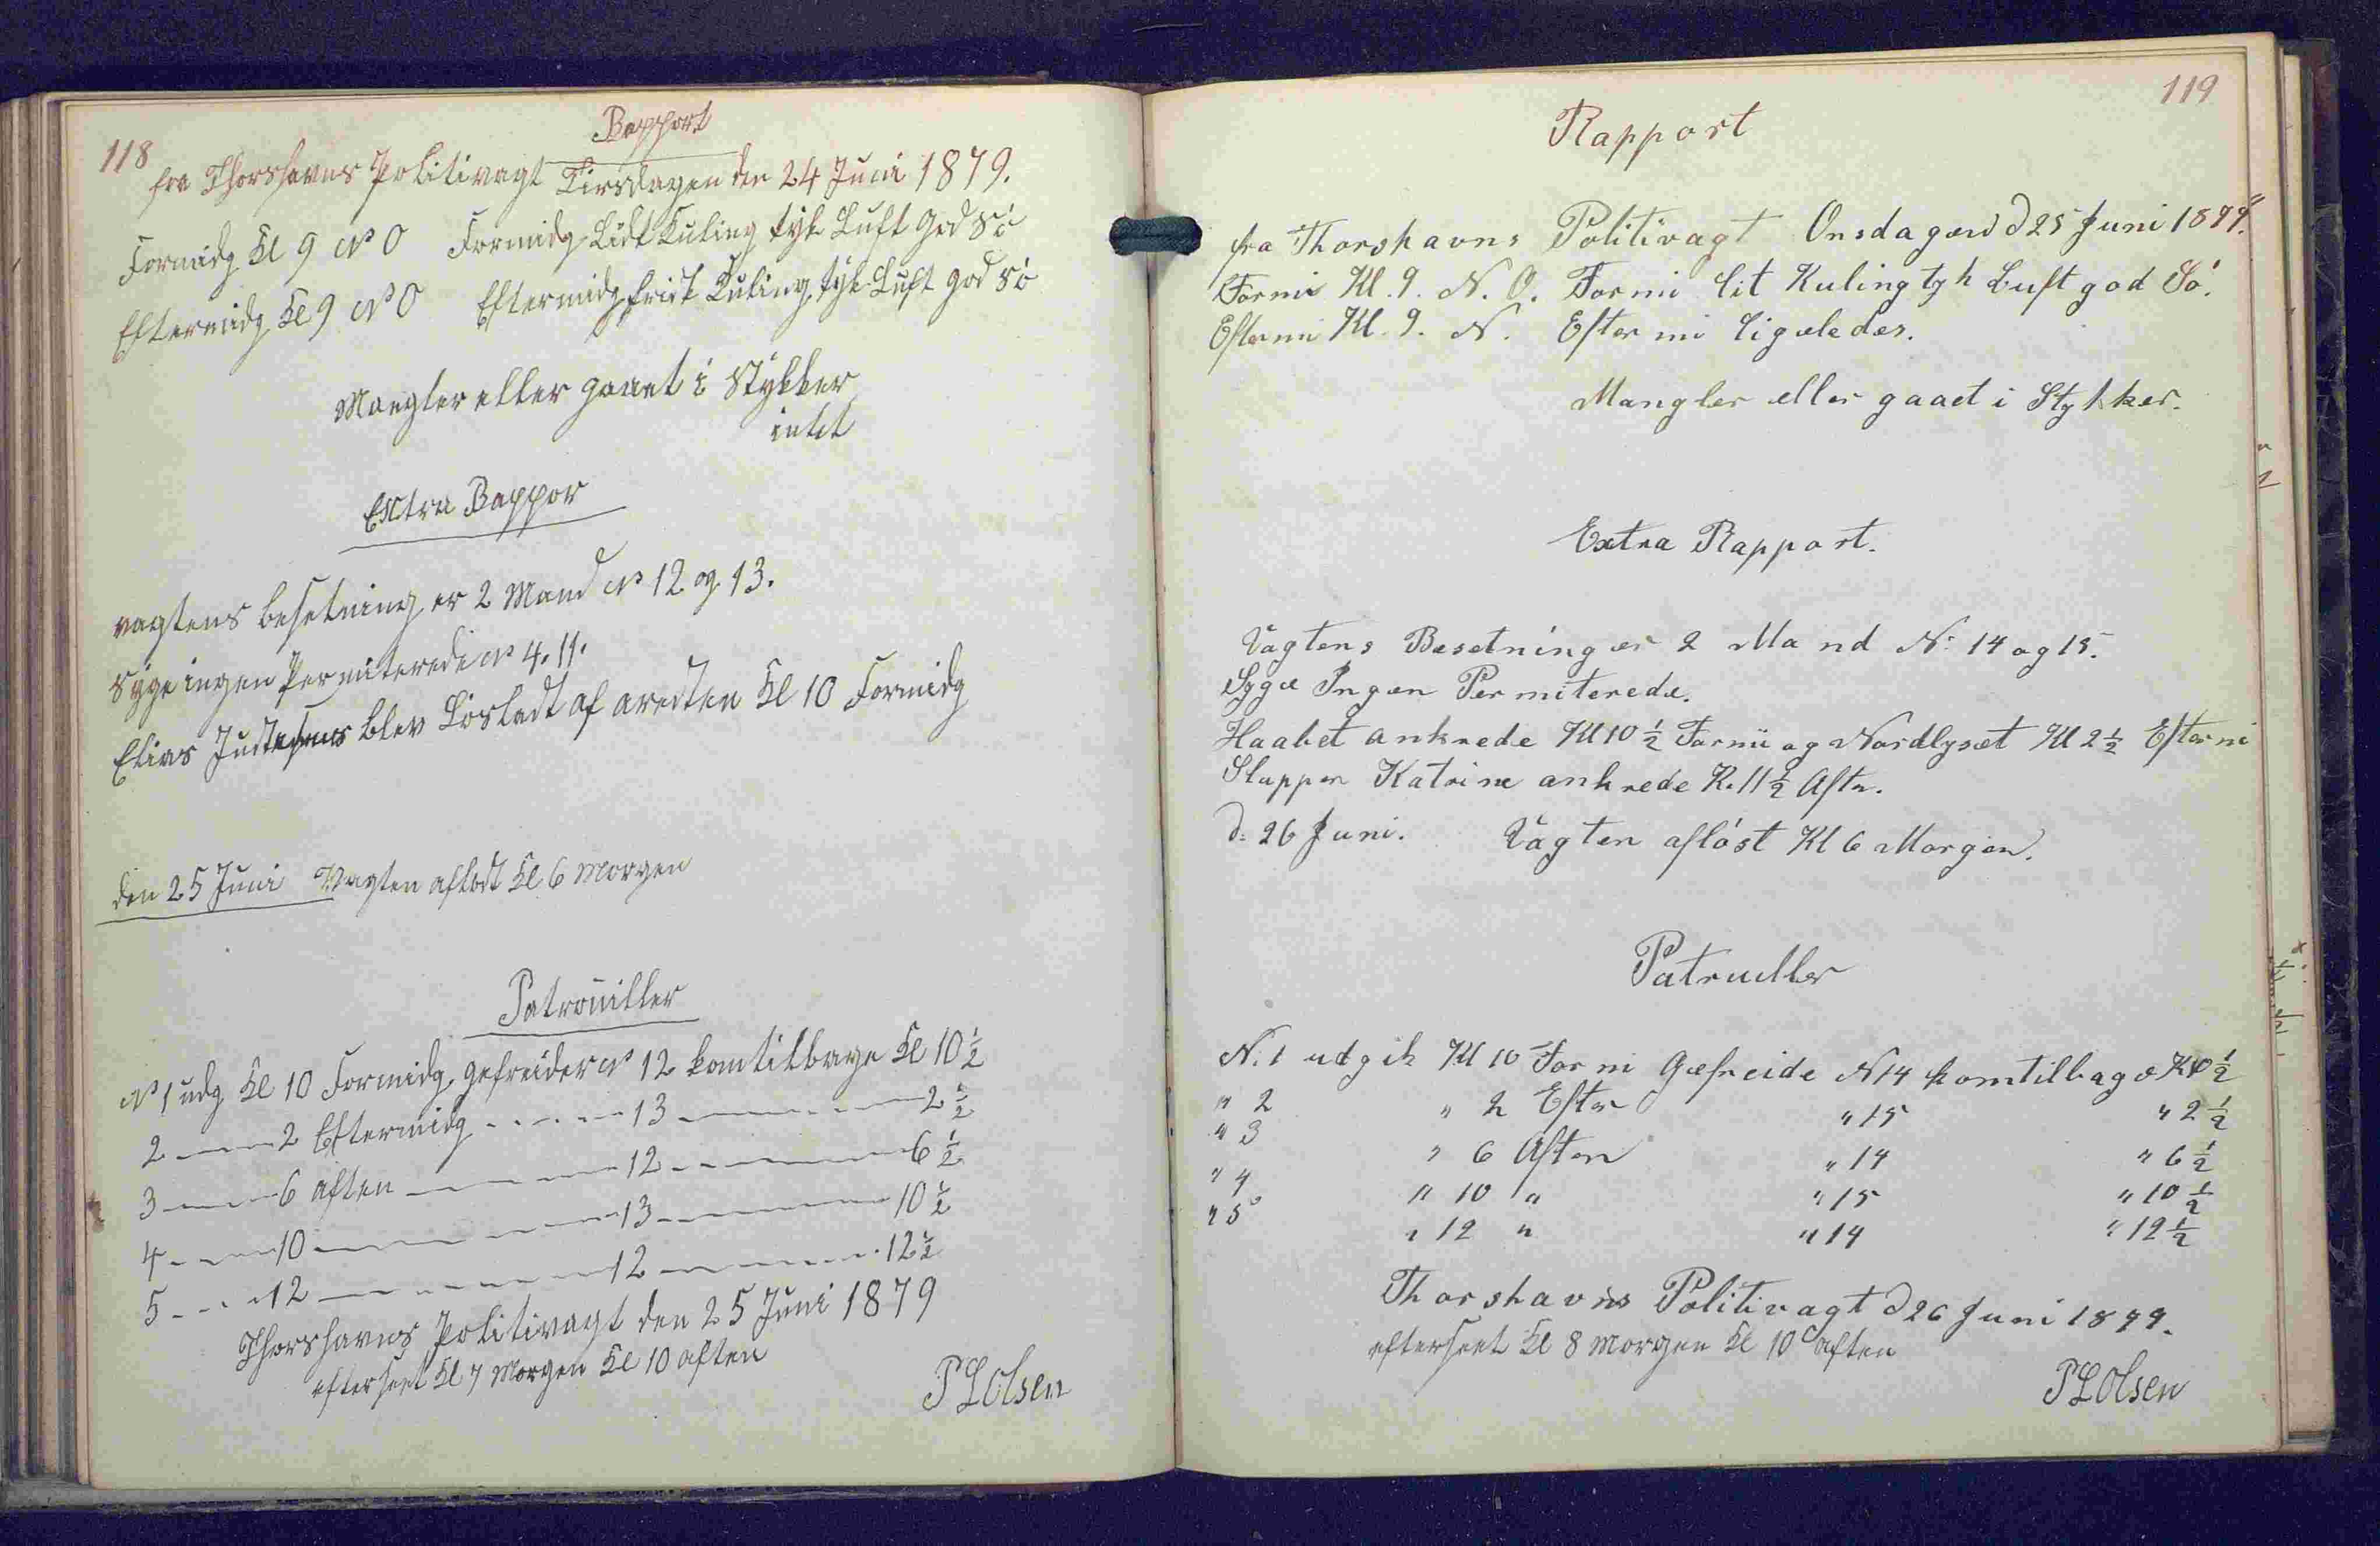 118
Rapport
fra Thorshavns Politivagt Tirsdagen den 24 Juni 1879.
Formidg Kl 9 N O Formidg Lidt Kuling tyk Luft God Sö
Eftermidg Kl 9 N O Eftermidg frisk Kuling tyk Luft god Sö
Mangler eller gaaet i Stykker
intet
Extra Rappor
vagtens besetning er 2 Mand No 12 og 13.
Syge ingen Permiterede No 4. 11.
Elias blev Lösladt af aresten Kl 10 Formidg
den 25 Juni Vagten aflöst Kl 6 Morgen
Patrouiller
No 1 udg Kl 10 Formidg gefreider No 12 kom tilbage Kl 10 1/2
2 — 2 Eftermidg — 13 — 2 1/2
3 — 6 aften — 12 — 6 1/2
4 — 10 — 13 — 10 1/2
5 — 12 — 12 — 12 1/2
Thorshavns Politivagt den 25 Juni 1879
efterseet Kl 7 Morgen Kl 10 aften
P L Olsen
119
Rapport
fra Thorshavns Politivagt Onsdagen d 25 Juni 1879.
Formi Kl. 9. N. O. Formi lit Kuling tyk Luft god Sö.
Eftermi Kl. 9. N. Eftermi ligeledes.
Mangler eller gaaet i Stykker.
Extra Rapport.
Vagtens Besetning er 2 Mand N: 14 og 15.
Syge Ingen Permiterede.
Haabet ankrede Kl 10 1/2 Formi og Nordlyset Kl 2 1/2 Eftermi
Sluppen Katrine ankrede K. 11 1/2 Aftn.
d: 26 Juni. Vagten aflöst Kl 6 Morgen.
Patrueller
N. 1 udgik Kl 10 Formi Gefreide N 14 kom tilbage Kl 10 1/2
" 2 " 2 Efter " 15 " 2 1/2
" 3 " 6 Aften " 14 " 6 1/2
" 4 " 10 " " 15 " 10 1/2
" 5 " 12 " " 14 " 12 1/2
Thorshavns Politivagt d 26 Juni 1879.
efterseet Kl 8 Morgen Kl 10 aften
P L Olsen